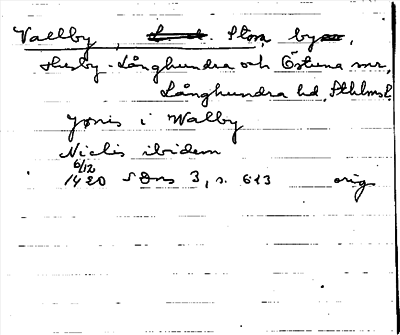 Vallby, Stora, by,
Husby-Långhundra och Östuna snr,
Långhundra hd, Sthlms l.
Jønis i Walby
Niclis ibidem
6/12
1420 SDns 3, s. 613 orig